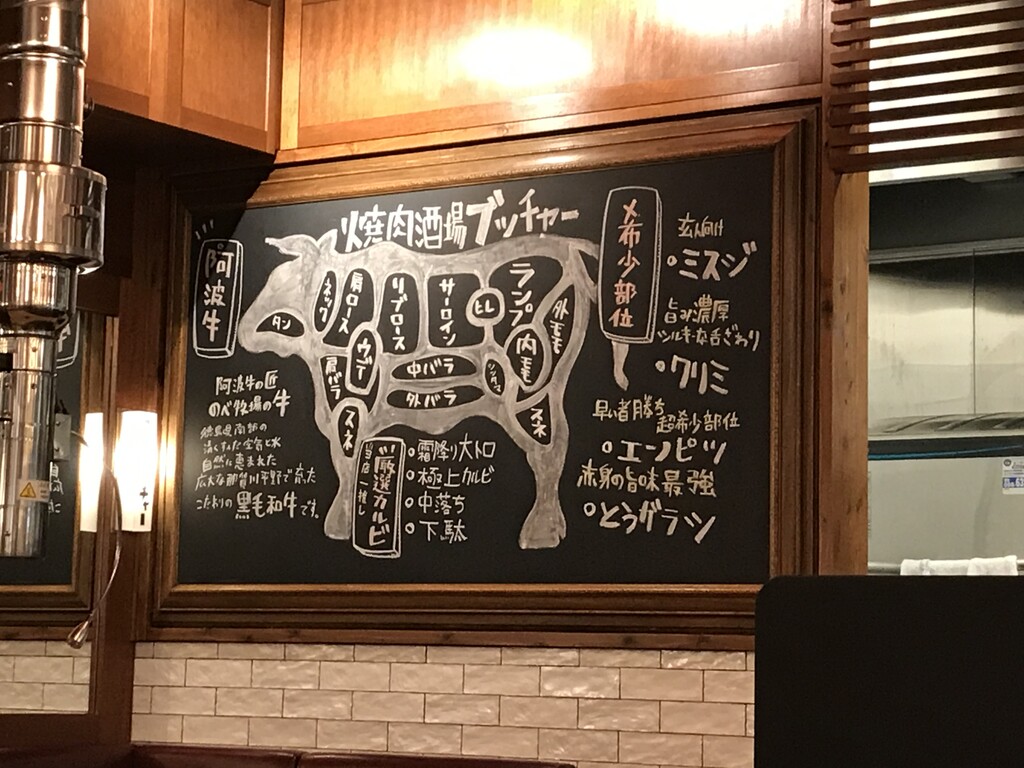 焼肉酒場ブッチャー
阿波牛
タン
ネック
肩ロース
リブロース
サーロイン
ヒレ
ランプ
外モモ
内モモ
ウデ
肩バラ
中バラ
外バラ
シンタマ
スネ
スネ
阿波牛の匠
のべ牧場の牛
徳島県南部の
清く澄んだ空気と水
自然に恵まれた
広大な那賀川平野で育った
こだわりの黒毛和牛です。
当店一推し
厳選カルビ
・霜降り大トロ
・極上カルビ
・中落ち
・下駄
希少部位
玄人向け
・ミスジ
旨み濃厚
ツルキな舌ざわり
・クリミ
早い者勝ち
超希少部位
・エンピツ
赤身の旨味最強
・とうガラシ